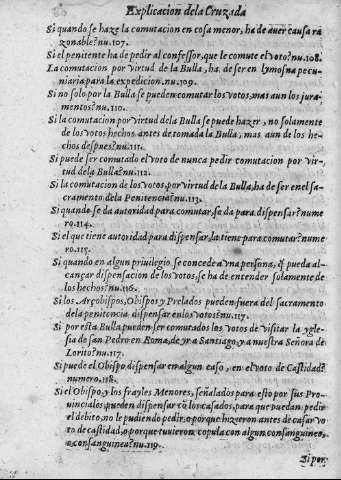 Explicacion dela Cruzada
Si quando se haze la comutacion en cosa menor, ha de auer causa ra
zonable? nu.107.
Si el penitente ha de pedir al confessor, que le comute el voto? nu.108.
La comutacion por virtud de la Bulla, ha de ser en lymosna pecu-
niaria para la expedicion. nu.109.
Si no solo por la Bulla se pueden comutar los votos, mas aun los jura-
mentos? nu.110.
Si la comutacion por virtud dela Bulla se puede hazer, no solamente
de los votos hechos antes de tomada la Bulla, mas aun de los he-
chos despues? nu.111.
Si puede ser comutado el voto de nunca pedir comutacion por vir-
tud dela Bulla? nu.112.
Si la comutacion de los votos, por virtud de la Bulla, ha de ser enel sa-
cramento dela Penitencia? nu.113.
Si quando se da autoridad para comutar, se da para dispensar? nume
ro.114.
Si el que tiene autoridad para dispensar, la tiene para comutar? nume
ro.115.
Si quando en algun priuilegio se concede a vna persona, q̃ pueda al-
cançar dispensacion de los votos, se ha de entender solamente de
los hechos? nu.116.
Si los Arçobispos, Obispos y Prelados pueden fuera del sacramento
dela penitencia dispensar enlos votos? nu.117.
Si por esta Bulla pueden ser comutados los votos de visitar la ygle-
sia de san Pedro en Roma, de yr a Santiago, y a nuestra Señora de
Lorito? nu.117.
Si puede el Obispo dispensar en algun caso, en el voto de Castidad?
numero.118.
Si el Obispo, y los frayles Menores, señalados para esto por sus Pro-
uinciales, pueden dispensar cõ los casados, para que puedan pedir
el debito, no le pudiendo pedir, o porque hizieron antes de casar vo
to de castidad, o porque tuuieron copula con algun consanguineo,
o consanguinea? nu.119.
Si por